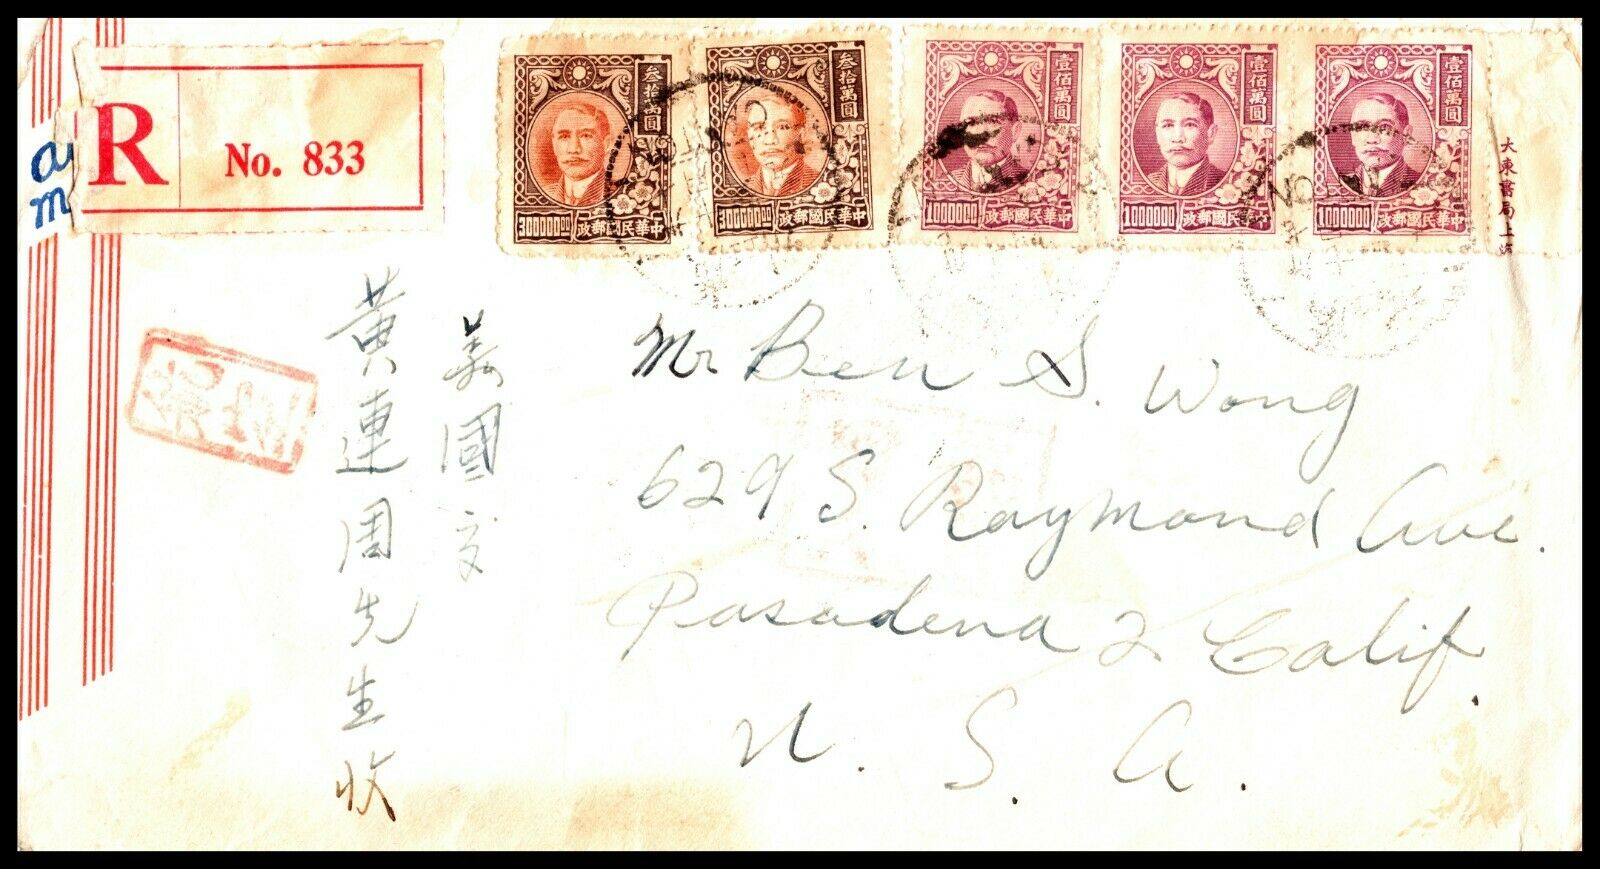 R
No. 833
叁拾萬圓
300000.00
中華民國郵政
叁拾萬圓
300000.00
中華民國郵政
壹佰萬圓
1000000
中華民國郵政
壹佰萬圓
1000000
中華民國郵政
壹佰萬圓
1000000
中華民國郵政
大東書局上海
美國交
黄連周先生收
Mr Ben S. Wong
629 S. Raymond Ave.
Pasadena 2 Calif.
U. S. A.